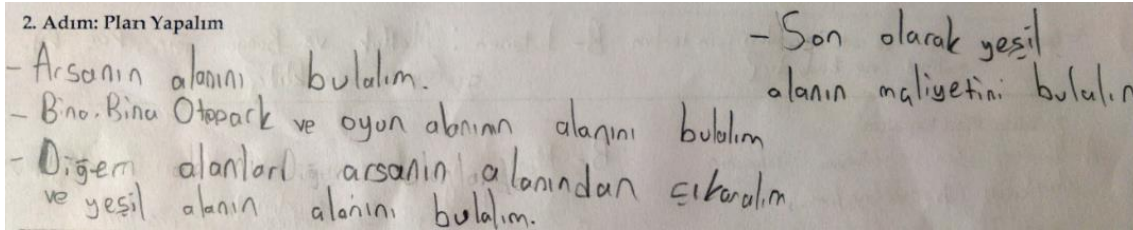 2. Adım: Plan Yapalım
- Arsanın alanını bulalım.
- Bina. Bina Otopark ve oyun alanının alanını bulalım
- Diğem alanları arsanın alanından çıkaralım
ve yeşil alanın alanını bulalım.
- Son olarak yeşil
alanın maliyetini bulalım